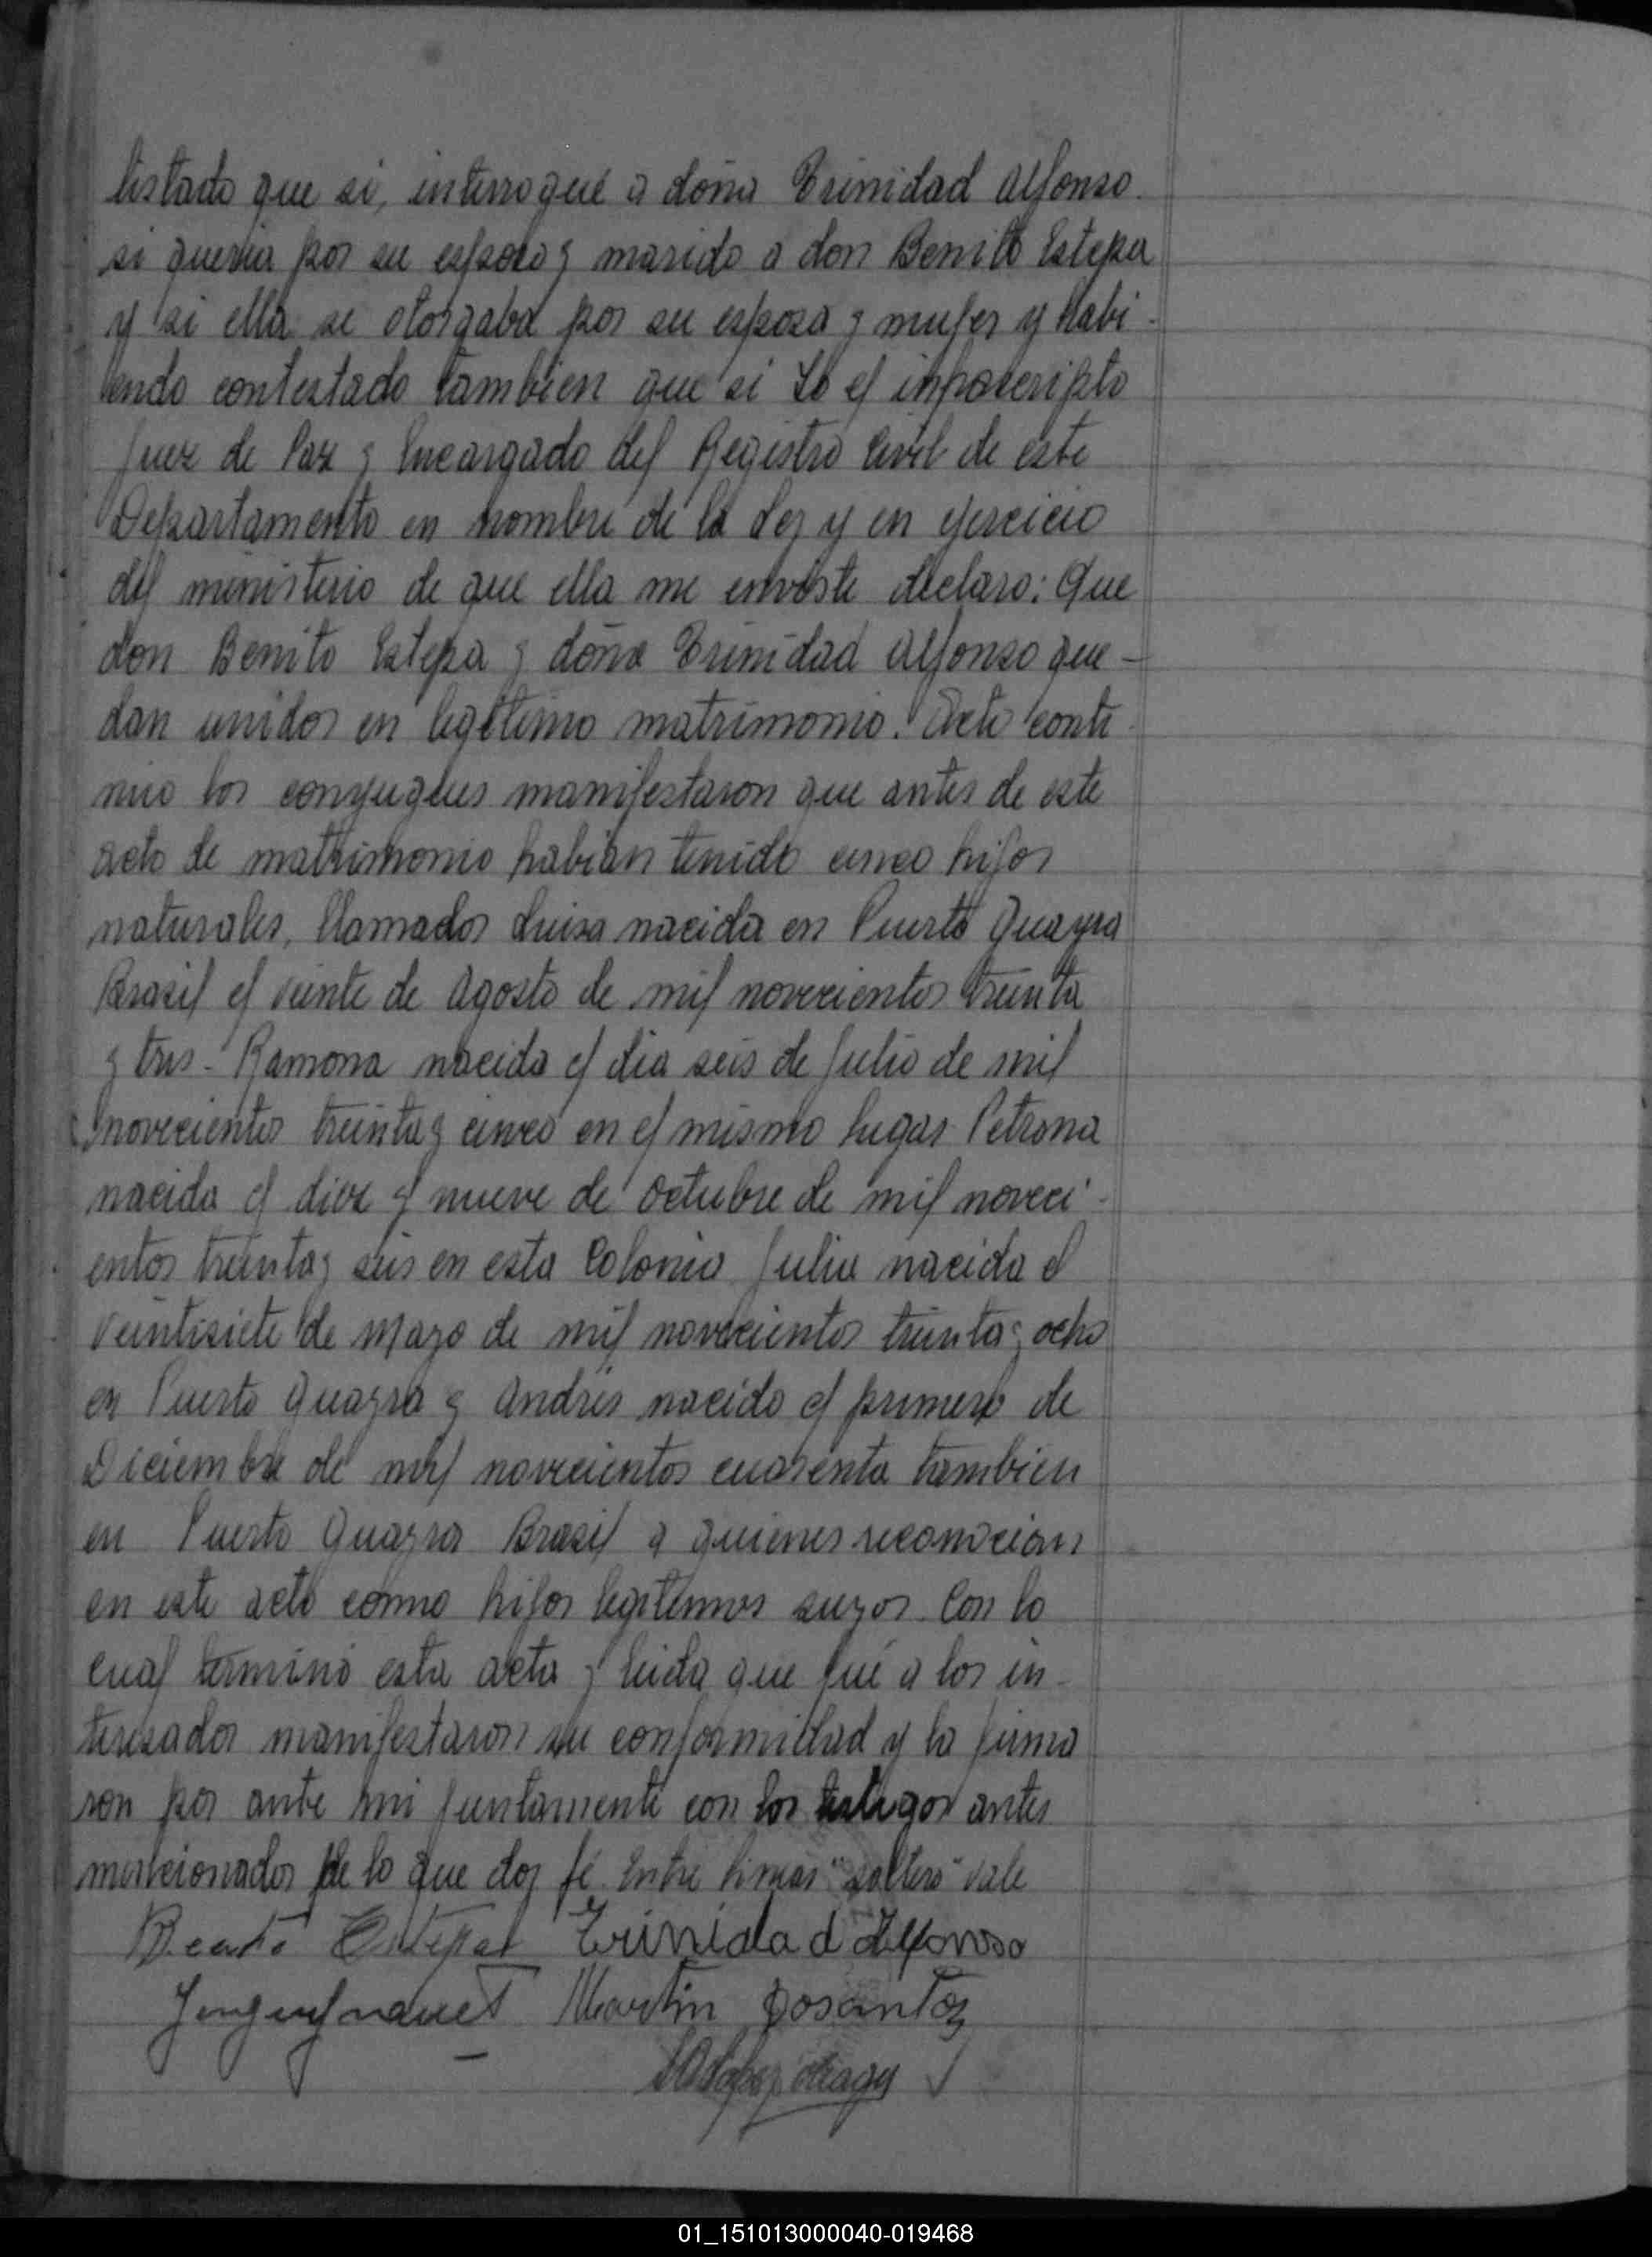 testado que si, interrogué a doña Trinidad Alfonso.
si queria por su esposo y marido a don Benito Estepa
y si ella se otorgaba por su esposa y mujer y habi-
endo contestado tambien que si Yo el infrascripto
Juez de Paz y Encargado del Registro Civil de este
Departamento en nombre de la Ley y en ejercicio
del ministerio de que ella me enviste declaro: Que
don Benito Estepa y doña Trinidad Alfonso que-
dan unidos en legitimo matrimonio. Acto conti-
nuo los conyugues manifestaron que antes de este
acto de matrimonio habian tenido cinco hijos
naturales, llamados Luisa nacida en Puerto Guayra
Brasil el veinte de Agosto de mil novecientos treinta
y tres - Ramona nacida el dia seis de Julio de mil
novecientos treinta y cinco en el mismo lugar Petrona
nacida el diez y nueve de Octubre de mil noveci-
entos treinta y seis en esta Colonia Julia nacida el
veintisiete de Mayo de mil novecientos treinta y ocho
en Puerto Guayra y Andrés nacido el primero de
Diciembre de mil novecientos cuarenta tambien
en Puerto Guayra Brasil a quienes reconocian
en este acto como hijos legitimos suyos. Con lo
cual terminó esta acta y leida que fué a los in-
teresados manifestaron su conformidad y la firma
ron por ante mi juntamente con los testigos antes
mencionados de lo que doy fé. Entre lineas "soltero" vale
Benito Estepa Trinidad Alfonso
Martin Dosantos
01_151013000040-019468